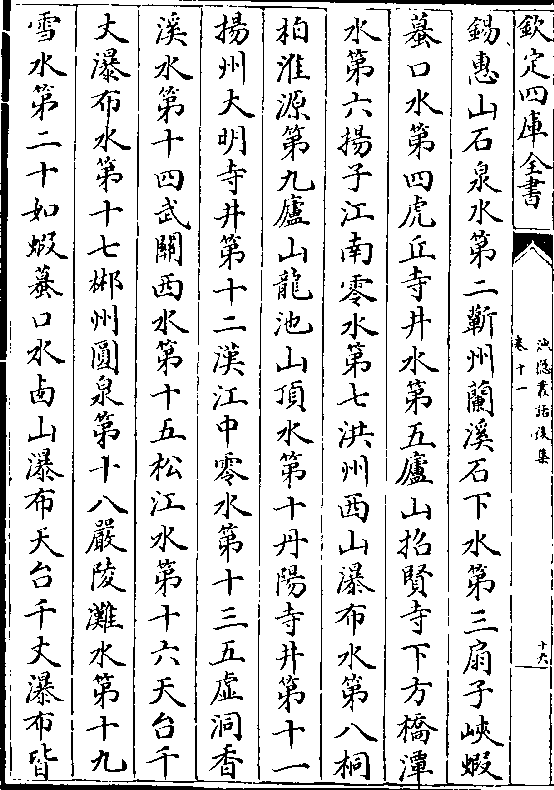 欽定四庫全書
漁隱叢話後集
卷十一
十六
錫惠山石泉水第二蘄州蘭溪石下水第三扇子峽蝦
蟇口水第四虎丘寺井水第五廬山招賢寺下方橋潭
水第六揚子江南零水第七洪州西山瀑布水第八桐
柏淮源第九廬山龍池山頂水第十丹陽寺井第十一
揚州大明寺井第十二漢江中零水第十三五虛洞香
溪水第十四武關西水第十五松江水第十六天台千
丈瀑布水第十七郴州圓泉第十八嚴陵灘水第十九
雪水第二十如蝦蟇口水西山瀑布天台千丈瀑布皆